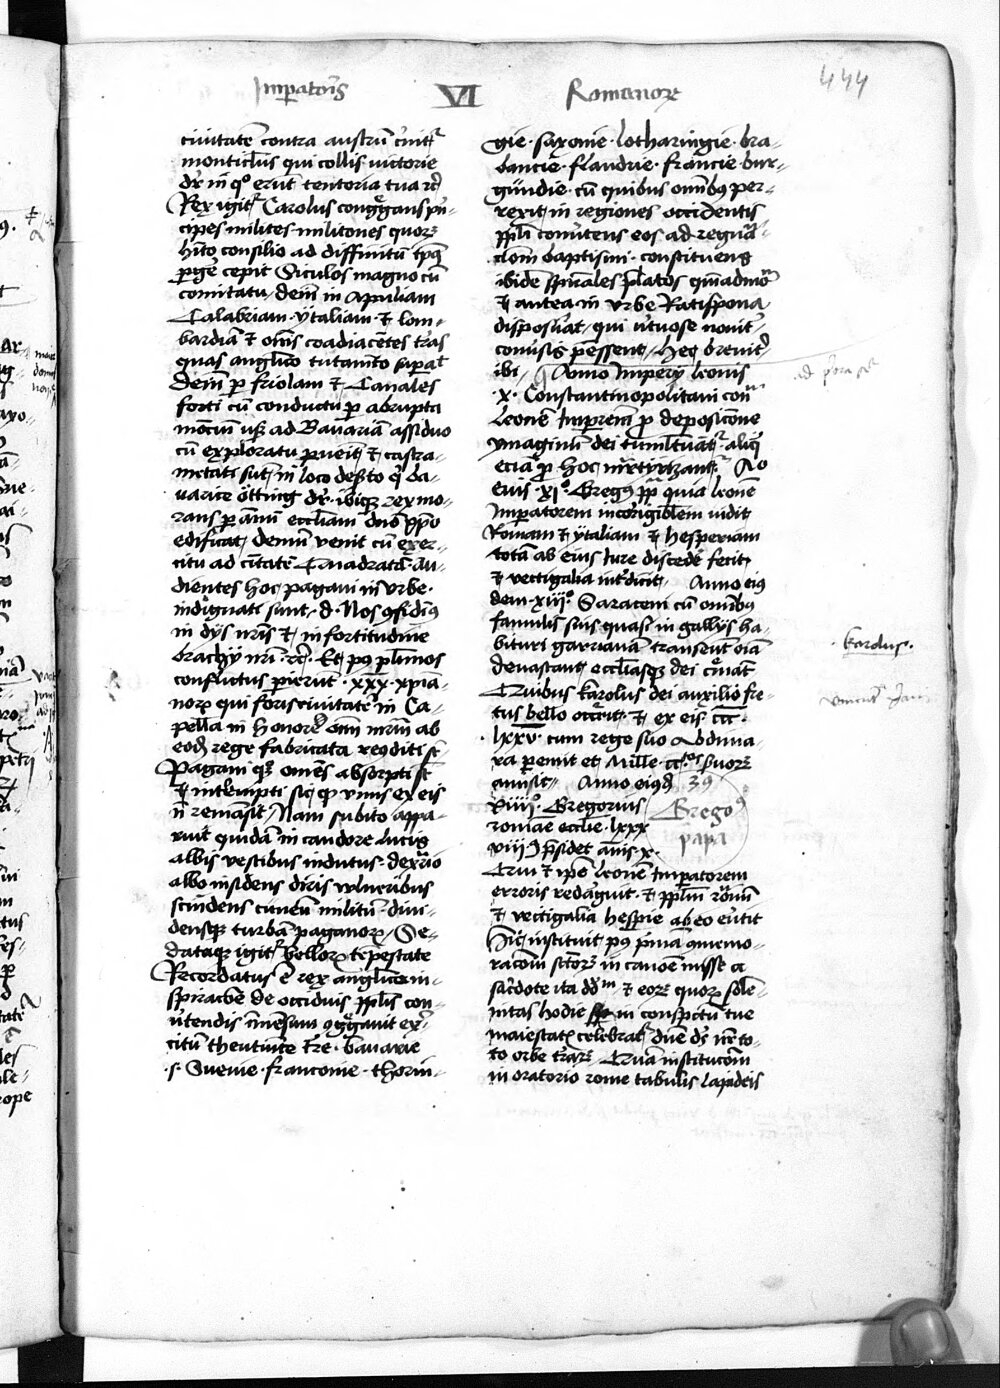 Imp̄atoris VI Romanorꝝ
444
ciuitatē contra austrū cīnit᷑
monticlus qui collis victorie
dr̄ in qͦ erūt tentoria tua rc̄
Rex igit᷑ Carolus congͣgans pn̄-
cipes milites militones quorꝝ
hīto consilio ad diffinitū tp̄us
ꝑgē cepit Siculos magno cū
comitatu, dein̄ in Apuliam
Calabriam. ytaliam. et lom-
bardiā et om̄s coadiacētes t̄ras
quas anglico tutamīto suꝑat
Dein̄ ꝑ friolam et Canales
forti cū conductu ꝑ abrupta
mōciū usqꝫ ad Bauariā assiduo
cū exploratu ꝑuenit et castra-
metati sūt, in loco deserto qͥ ba-
uarice ötting dr̄. ibiqꝫ rex mo-
rans ꝑ annū eccl̄iam dn̄o pp̄o
edificat, demū venit cū exer-
citu ad ciuitatē Quadratā. Au-
dientes hoc pagani in vrbe.
indignati sunt. d. Nos ꝯfidimꝰ
in dijs nr̄is et in fortitudine
brachij nr̄i. rc̄. Et pꝰ pl̄imos
conflictus perierūt. xxx. xp̄ia-
norꝝ qui foris ciuitatē in Ca-
pella in honorē om̄ mr̄m ab
eodē rege fabricata reꝯditi st̄
Pagani qꝫ om̄es absorpti st̄
et intēempti sic qꝫ vnus ex eis
n̄ remansit, Nam subito appa-
ruit quidā in candore lucis
albis vestibus indutus. dextrario
albo insidens diris vulneribus
scindens cuneū militū. diui-
densqꝫ turbā paganorꝝ, Se-
dataqꝫ igit᷑ bellorꝝ tēpestate
Recordatus ē rex anglico in-
spiracōe de occiduis ppl̄is con-
ūtendis īmēsum ꝯgͣgauit exͤr-
citū theutunice t̄re. bauarie
.s. Sueuie. franconie. thorin-
gie. saxonie. lotharingie. bra-
bancie. flandrie. francie bur-
gundie. cū quibus omībus per-
rexit, in regiones occidentis
ppl̄i comūtens eos ad regnā-
clom baptismi. constituens
ibidē spūales p̄latos quēadmoͫ
et antea in vrbe Ratispona
disposūat, qui virtuose nouit᷑
comīsis p̄essent, Hec breuit᷑
ibi, Anno Imperij leonis
.x. Constantinopolitani con
Leonē Imperiem ꝑ deposicōne
ymaginū dei tumultuāt᷑ aliqͥ
eciā ꝑ hoc mr̄tyrizant᷑. Aͦo
eius. xiͦ. Gregꝰ pp̄ quia leonē
Imperatorem incorrigibilem vidit
Romam et ytaliam et hesperiam
totā ab eius iure discedē fecit,
et vectigalia int̄dicit, Anno eiꝰ
dem. xiijͦ. Saraceni cū omībꝰ
familis suis quasi in gallijs ha-
bituri garrianā transeūt oīa
deuastant, eccl̄iasqꝫ dei cͤmāt
Quibus karolus dei auxilio fre-
tus bello occ̄rit. et ex eis. ccc.
.lxxv. cum rege suo Abdima-
ra ꝑemit et Mille. cc.ͦˢ suorꝝ
amisit. Anno eiusdē 39
viiijͦ. Gregorius Gregoꝰ
romāe eccl̄ie. lxxx papa
viiij p̄sidet ānis x.
Qui et ip̄e leonē Imperatorem
erroris redarguit. et ppl̄m rom̄ū
et vectigalia hesperie ab eo ēūtit
Hic instituit pꝰ p̄mā ꝯmemo-
racōm sctōrꝝ in canone misse a
sacerdote ita dd̄ᵐ. et eorꝝ quorꝝ solē-
nitas hodie in conspectu tue
maiestatꝭ celebrat᷑ dn̄e ds̄ nr̄ to-
to orbe t̄rarꝝ Quā institucōm
in oratorio rome tabulis lapideis
.karolus.